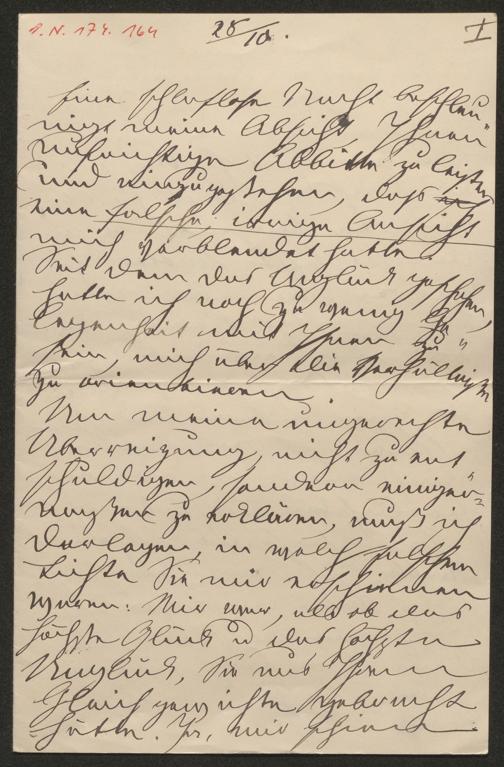 I. N. 174.164
28/10.
I
Eine schlaflose Nacht beschleu-
nigt meine Absicht, Ihnen
aufrichtige Abbitte zu leisten
und einzugestehen, daß
eine falsche, irrige Ansicht
mich verblendet hatte.
Seit dem das Unglück geschehen,
hatte ich noch zu wenig Ge-
legenheit mit Ihnen zu
sein, mich über die Verhältnisse
zu orientieren
Um meine ungerechte
Überreizung, nicht zu ent
schuldigen, sondern einiger-
maßen zu erklären, muß ich
darlegen, in welch falschem
Lichte Sie mir erschienen
waren: Mir war, als ob das
höchste Glück u das höchste
Unglück, Sie aus Ihrem
Gleichgewichte gebracht
hätte. Ja, mir schien